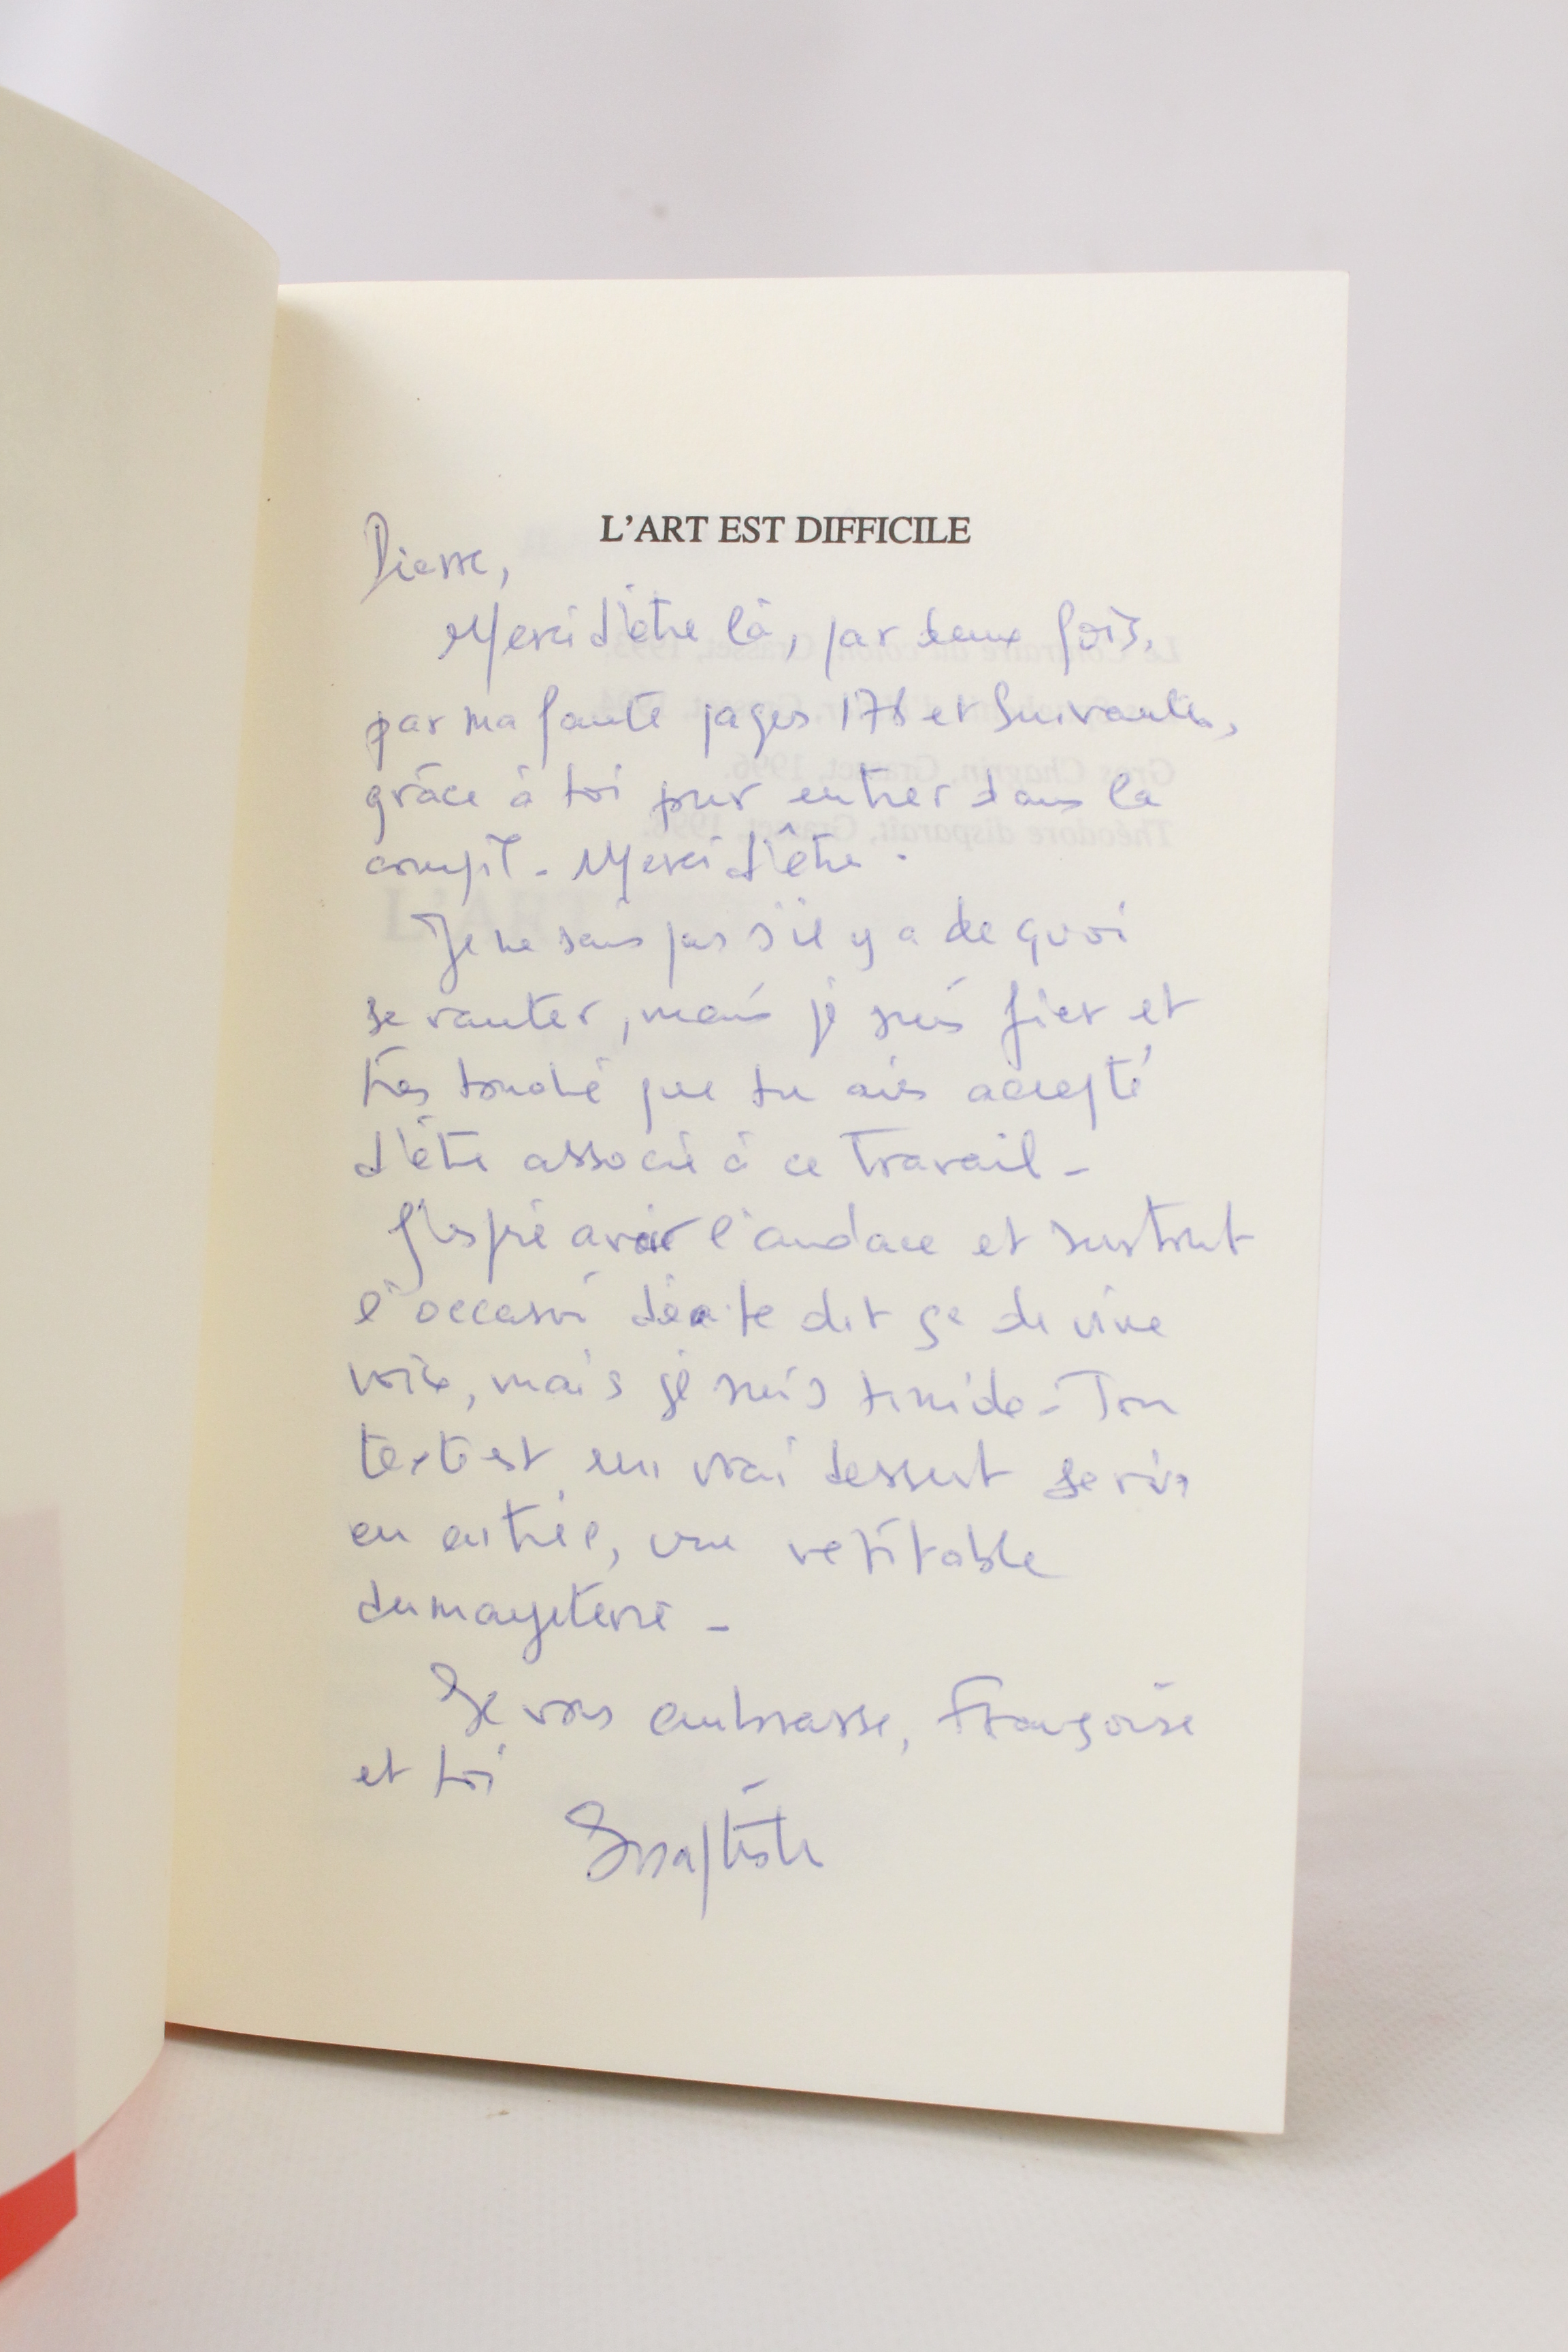 L'ART EST DIFFICILE
Pierre,
Merci d'être là, par deux fois,
par ma faute pages 176 et suivantes,
grâce à toi pour entrer dans la
compil - Merci d'être.
Je ne sais pas s'il y a de quoi
se vanter, mais je suis fier et
très touché que tu aies accepté
d'être associé à ce travail -
J'espère avoir l'audace et surtout
l'occasion de te dire ça de vive
voix, mais je suis timide - Ton
texte est un vrai dessert servi
en entrée, une véritable
dumayeterie -
Je vous embrasse, Françoise
et toi
JBaptiste